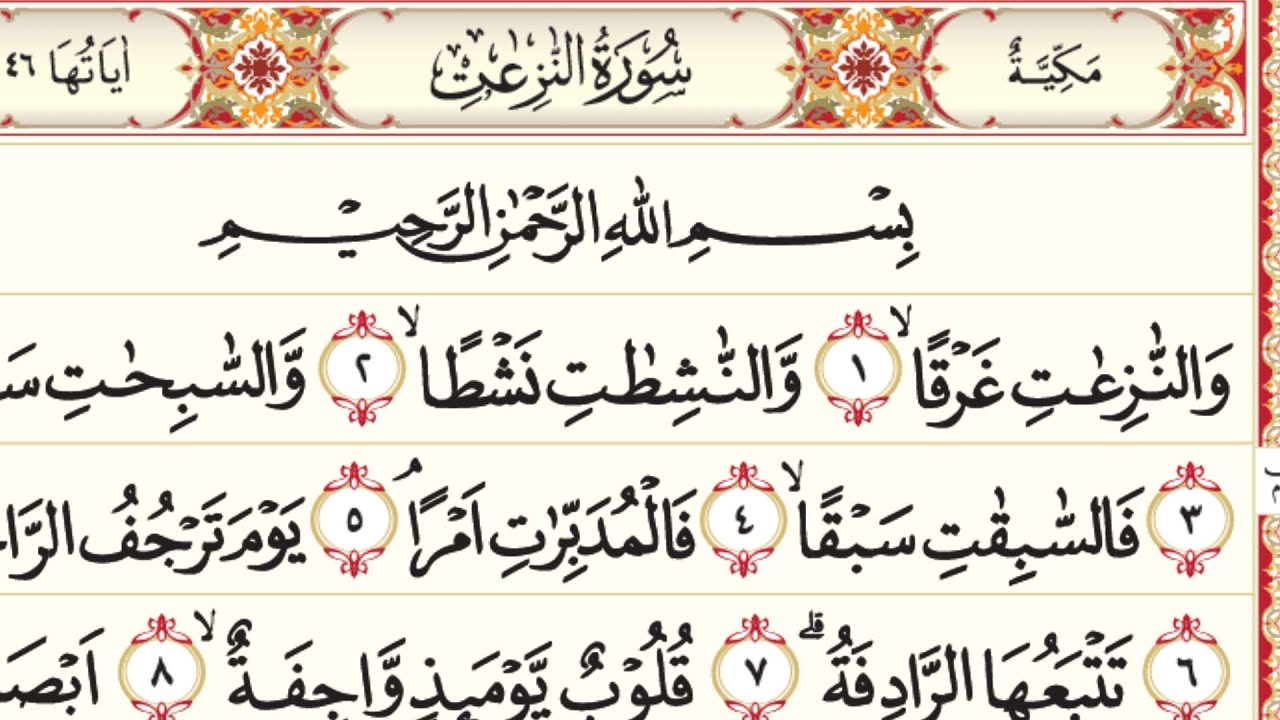 مَكِّيَّةٌ سُوْرَةُ النّٰزِعٰتِ اٰيَاتُهَا ٤٦
بِسْمِ اللهِ الرَّحْمٰنِ الرَّحِيْمِ
وَالنّٰزِعٰتِ غَرْقًا ۙ ١ وَّالنّٰشِطٰتِ نَشْطًا ۙ ٢ وَّالسّٰبِحٰتِ
٣ فَالسّٰبِقٰتِ سَبْقًا ۙ ٤ فَالْمُدَبِّرٰتِ اَمْرًا ۘ ٥ يَوْمَ تَرْجُفُ
٦ تَتْبَعُهَا الرَّادِفَةُ ۗ ٧ قُلُوْبٌ يَّوْمَىِٕذٍ وَّاجِفَةٌ ۙ ٨